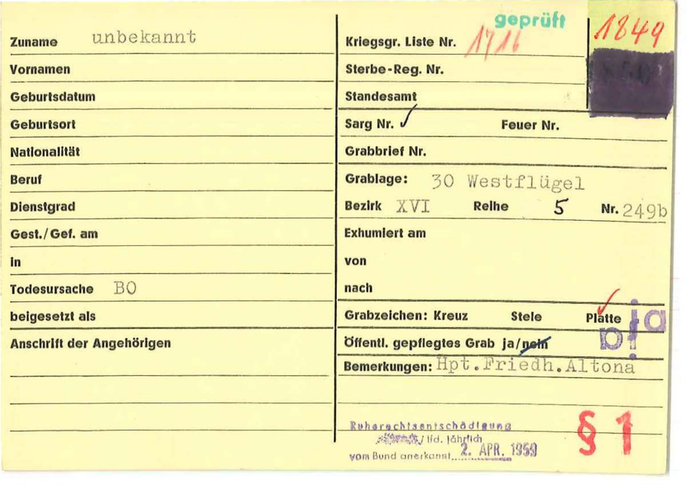 geprüft
1849
Zuname unbekannt
Vornamen
Geburtsdatum
Geburtsort
Nationalität
Beruf
Dienstgrad
Gest./Gef. am
in
Todesursache BO
beigesetzt als
Anschrift der Angehörigen
Kriegsgr. Liste Nr. 1716
Sterbe-Reg. Nr.
Standesamt
Sarg Nr. ✓ Feuer Nr.
Grabbrief Nr.
Grablage: 30 Westflügel
Bezirk XVI Reihe 5 Nr. 249b
Exhumiert am
von
nach
Grabzeichen: Kreuz Stele Platte
ja
Öffentl. gepflegtes Grab ja/nein
Bemerkungen: Hpt.Friedh.Altona
Ruherechtsentschädigung
/ lfd. jährlich
vom Bund anerkannt 2. APR. 1959
§ 1